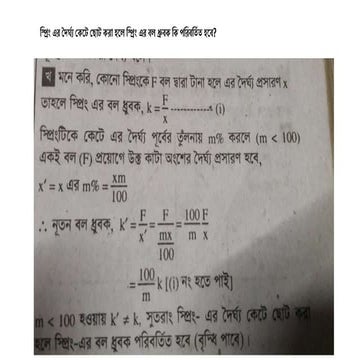 স্প্রিং এর দৈর্ঘ্য কেটে ছোট করা হলে স্প্রিং এর বল ধ্রুবক কি পরিবর্তিত হবে?
খ মনে করি, কোনো স্প্রিংকে F বল দ্বারা টানা হলে এর দৈর্ঘ্য প্রসারণ x
তাহলে স্প্রিং এর বল ধ্রুবক, k = F/x ------------ (i)
স্প্রিংটিকে কেটে এর দৈর্ঘ্য পূর্বের তুলনায় m% করলে (m < 100)
একই বল (F) প্রয়োগে উক্ত কাটা অংশের দৈর্ঘ্য প্রসারণ হবে,
x′ = x এর m% = xm/100
∴ নূতন বল ধ্রুবক, k′ = F/x′ = F/(mx/100) = 100/m F/x
= 100/m k [(i) নং হতে পাই]
m < 100 হওয়ায় k′ ≠ k, সুতরাং স্প্রিং- এর দৈর্ঘ্য কেটে ছোট করা
হলে স্প্রিং-এর বল ধ্রুবক পরিবর্তিত হবে (বৃদ্ধি পাবে)।